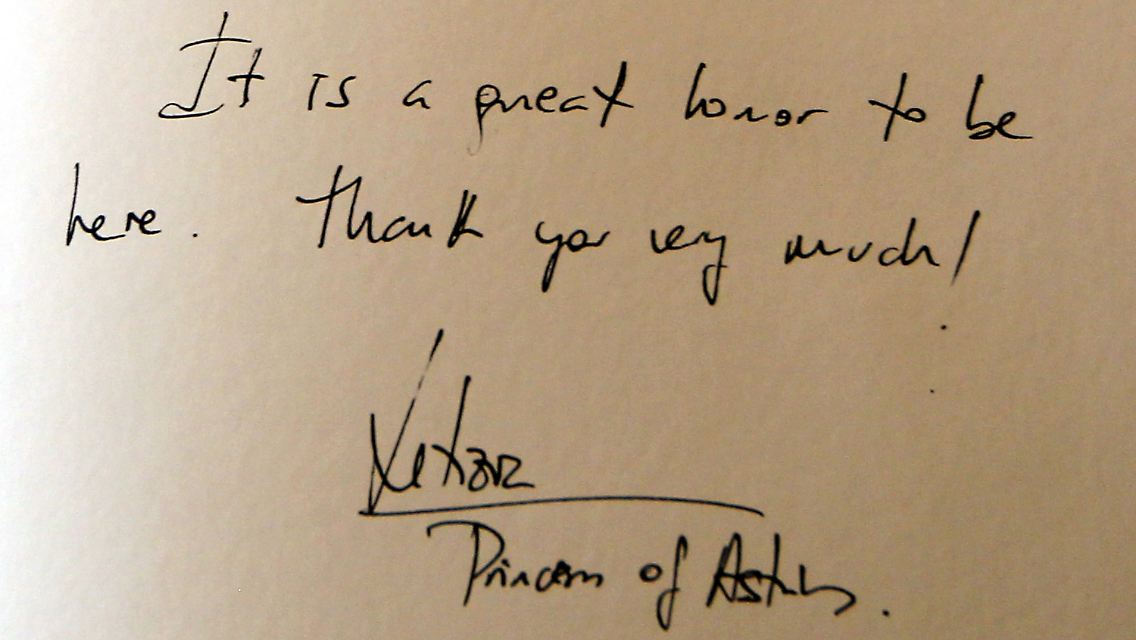 It is a great honor to be
here. Thank you very much!
Letizia
Princess of Asturias.